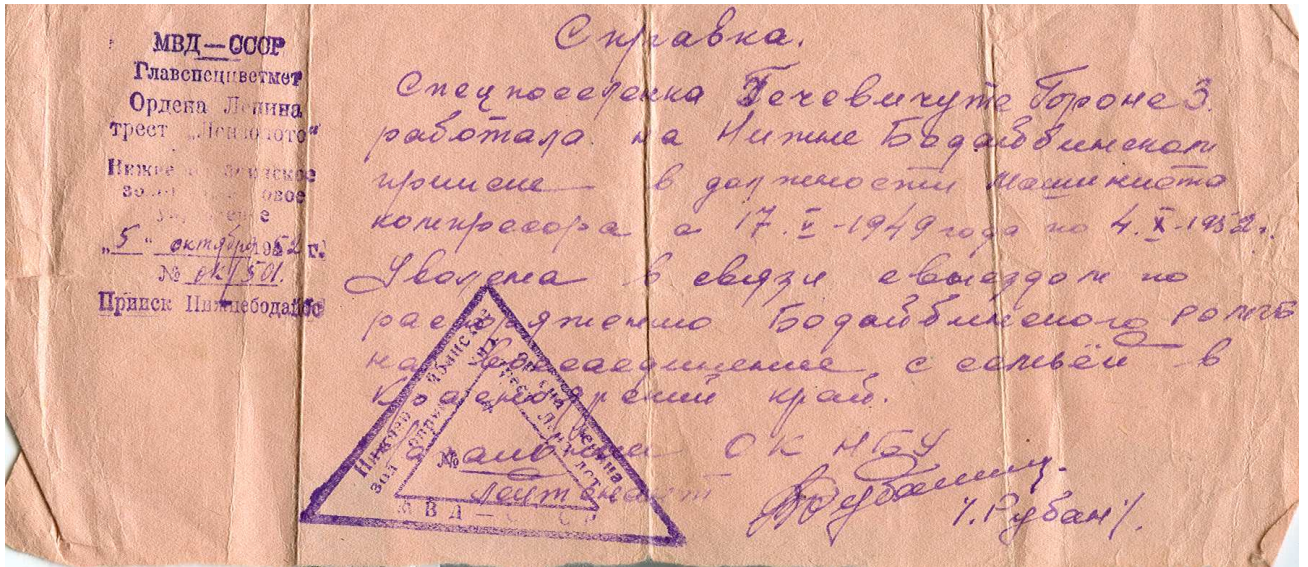 МВД — СССР
Главспецветмет
Ордена Ленина
трест „Лензолото“
Нижне
зол
„5“ октября 1952 г.
№ ок/501.
Прииск Нижнебодайбо
Справка.
Спецпоселенка Гечевичуте Гороне З.
работала на Нижне Бодайбинском
прииске в должности машиниста
компресора с 17. V-1949 года по 4. X-1952 г.
Уволена в связи с выездом по
распоряжению Бодайбинского
на воссоединение с семьёй в
Красноярский край.
Начальник ОК НБУ
лейтенант
/. Рубан /.
Ордена Ленина
трест Лензолото
№
МВД — СССР